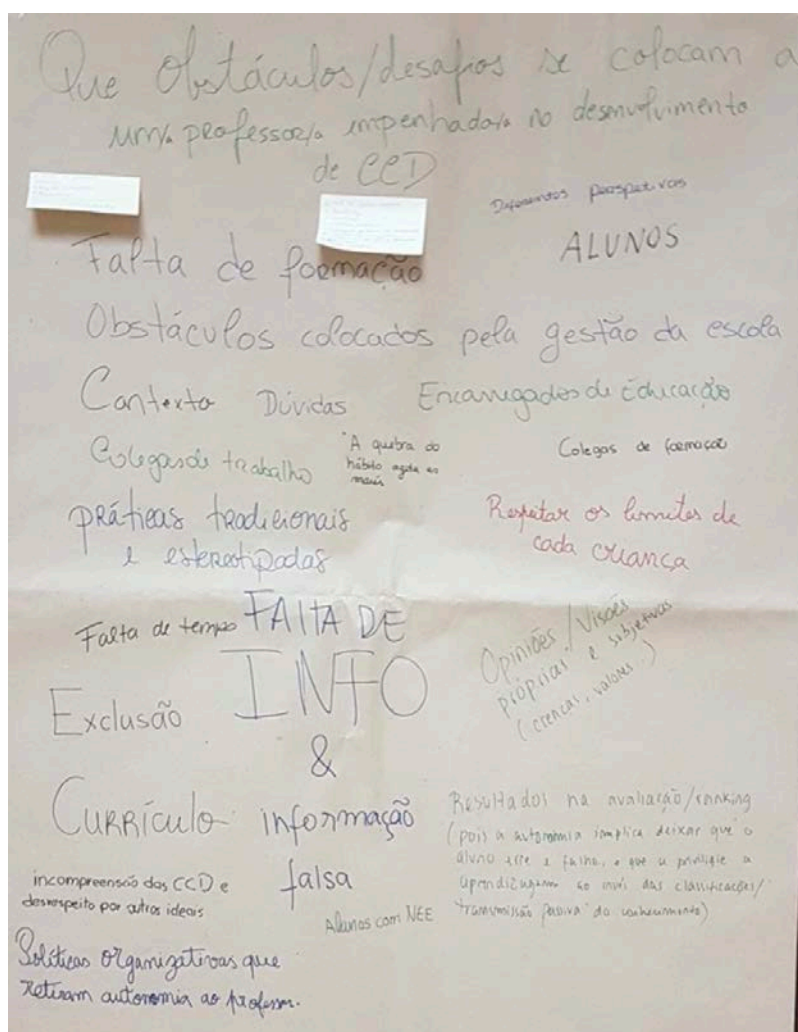 Que Obstáculos/desafios se colocam a
um/a professor/a empenhado/a no desenvolvimento
de CCD
Diferentes perspetivas
ALUNOS
Falta de formação
Obstáculos colocados pela gestão da escola
Contexto Dúvidas Encarregados de Educação
Colegas de trabalho
"A quebra do
hábito
Colegas de formação
práticas tradicionais
e estereotipadas
Respeitar os limites de
cada criança
Falta de tempo
FALTA DE
INFO
&
informação
falsa
Opiniões/Visões
próprias e subjetivas
(crenças, valores...)
Exclusão
Currículo
Resultados na avaliação/ranking
(pois a autonomia implica deixar que o
aluno erre e falhe, e que se privilegie a
aprendizagem ao invés das classificações/
transmissão passiva do conhecimento)
incompreensão das CCD e
desrespeito por outros ideais
Alunos com NEE
Políticas organizativas que
retiram autonomia ao professor.